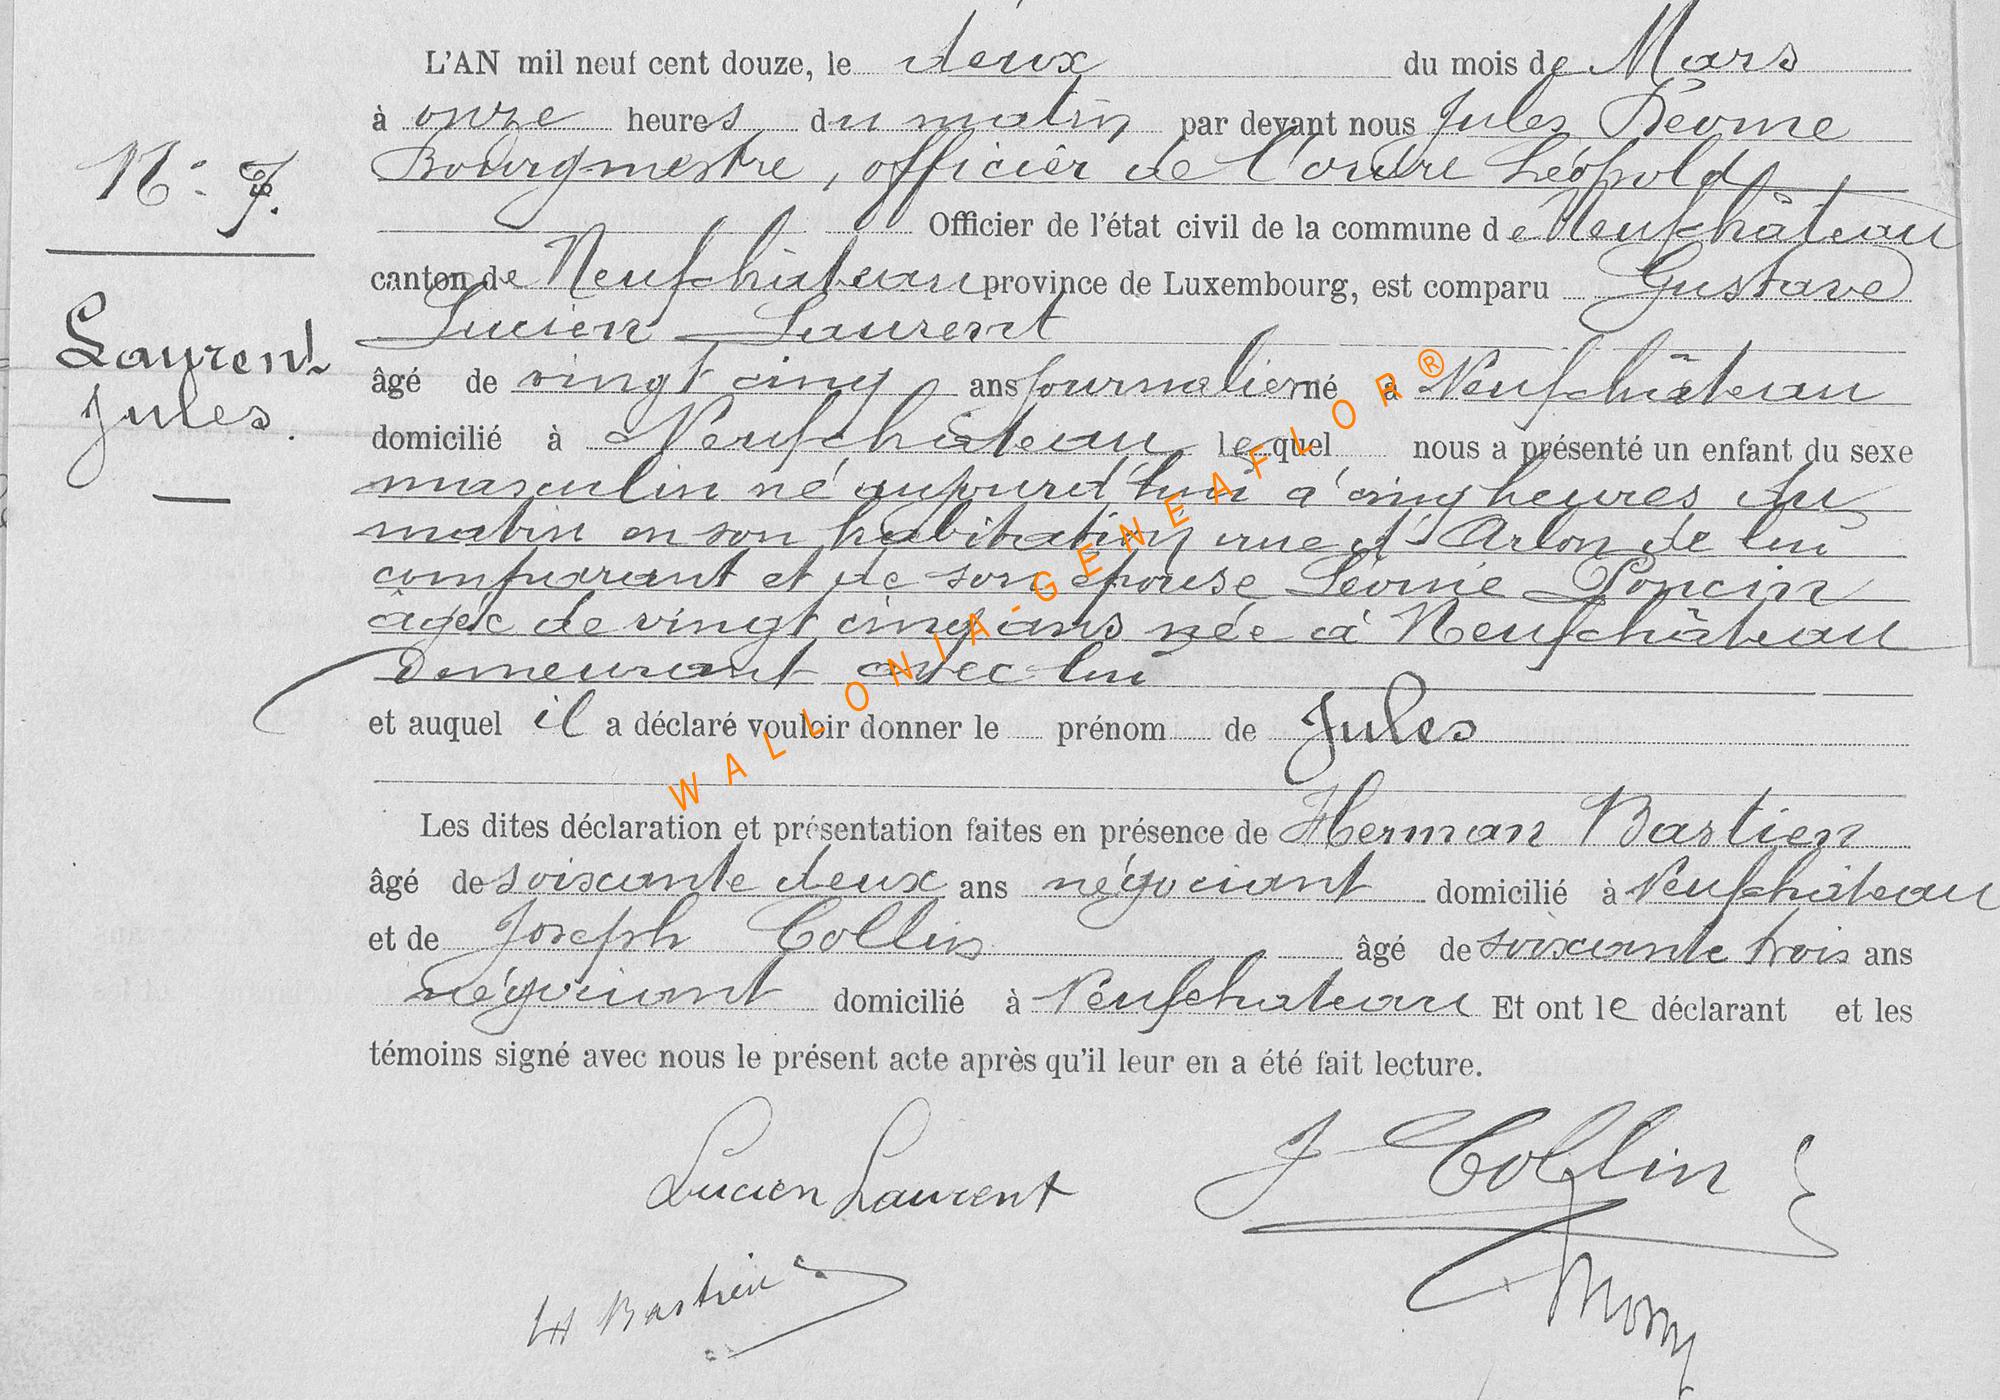 L'AN mil neuf cent douze, le deux du mois de Mars
à onze heures du matin par devant nous Jules
Bourgmestre, officier de l'ordre Léopold
Officier de l'état civil de la commune de Neufchâteau
canton de Neufchâteau province de Luxembourg, est comparu Gustave
Lucien Laurent
âgé de vingt cinq ans journalier né à Neufchâteau
domicilié à Neufchâteau lequel nous a présenté un enfant du sexe
masculin né aujourd'hui à cinq heures du
matin en son habitation rue d'Arlon de lui
comparant et de son épouse Léonie Poncin
âgée de vingt cinq ans née à Neufchâteau
demeurant avec lui
et auquel il a déclaré vouloir donner le prénom de Jules
Les dites déclaration et présentation faites en présence de Herman Bastien
âgé de soixante deux ans négociant domicilié à Neufchâteau
et de Joseph Collin âgé de soixante trois ans
négociant domicilié à Neufchateau Et ont le déclarant et les
témoins signé avec nous le présent acte après qu'il leur en a été fait lecture.
N° 7.
Laurent
Jules.
Lucien Laurent
J Collin
H Bastien
WALLONIA-GENEAFLOR®